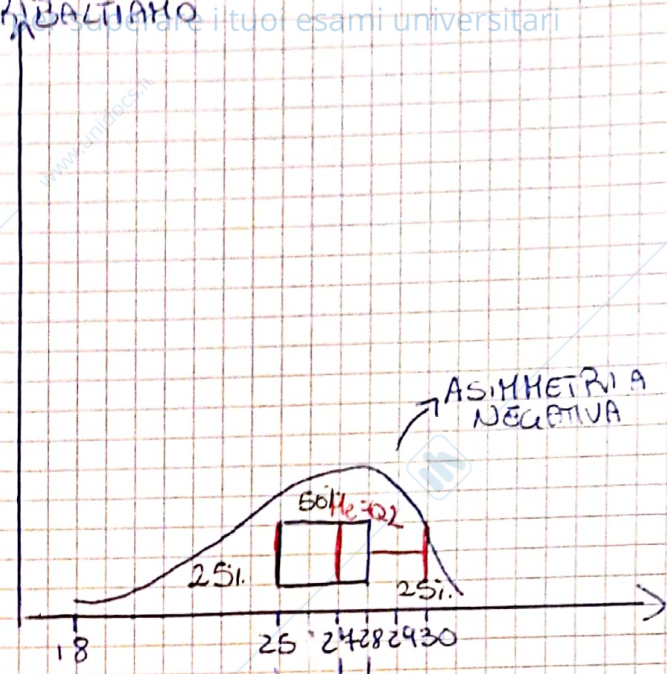 RIBALTIAMO
superare i tuoi esami universitari
www.unidocs.it
ASIMMETRIA
NEGATIVA
50% Me=Q2
25%.
25%.
18 25 27 28 29 30